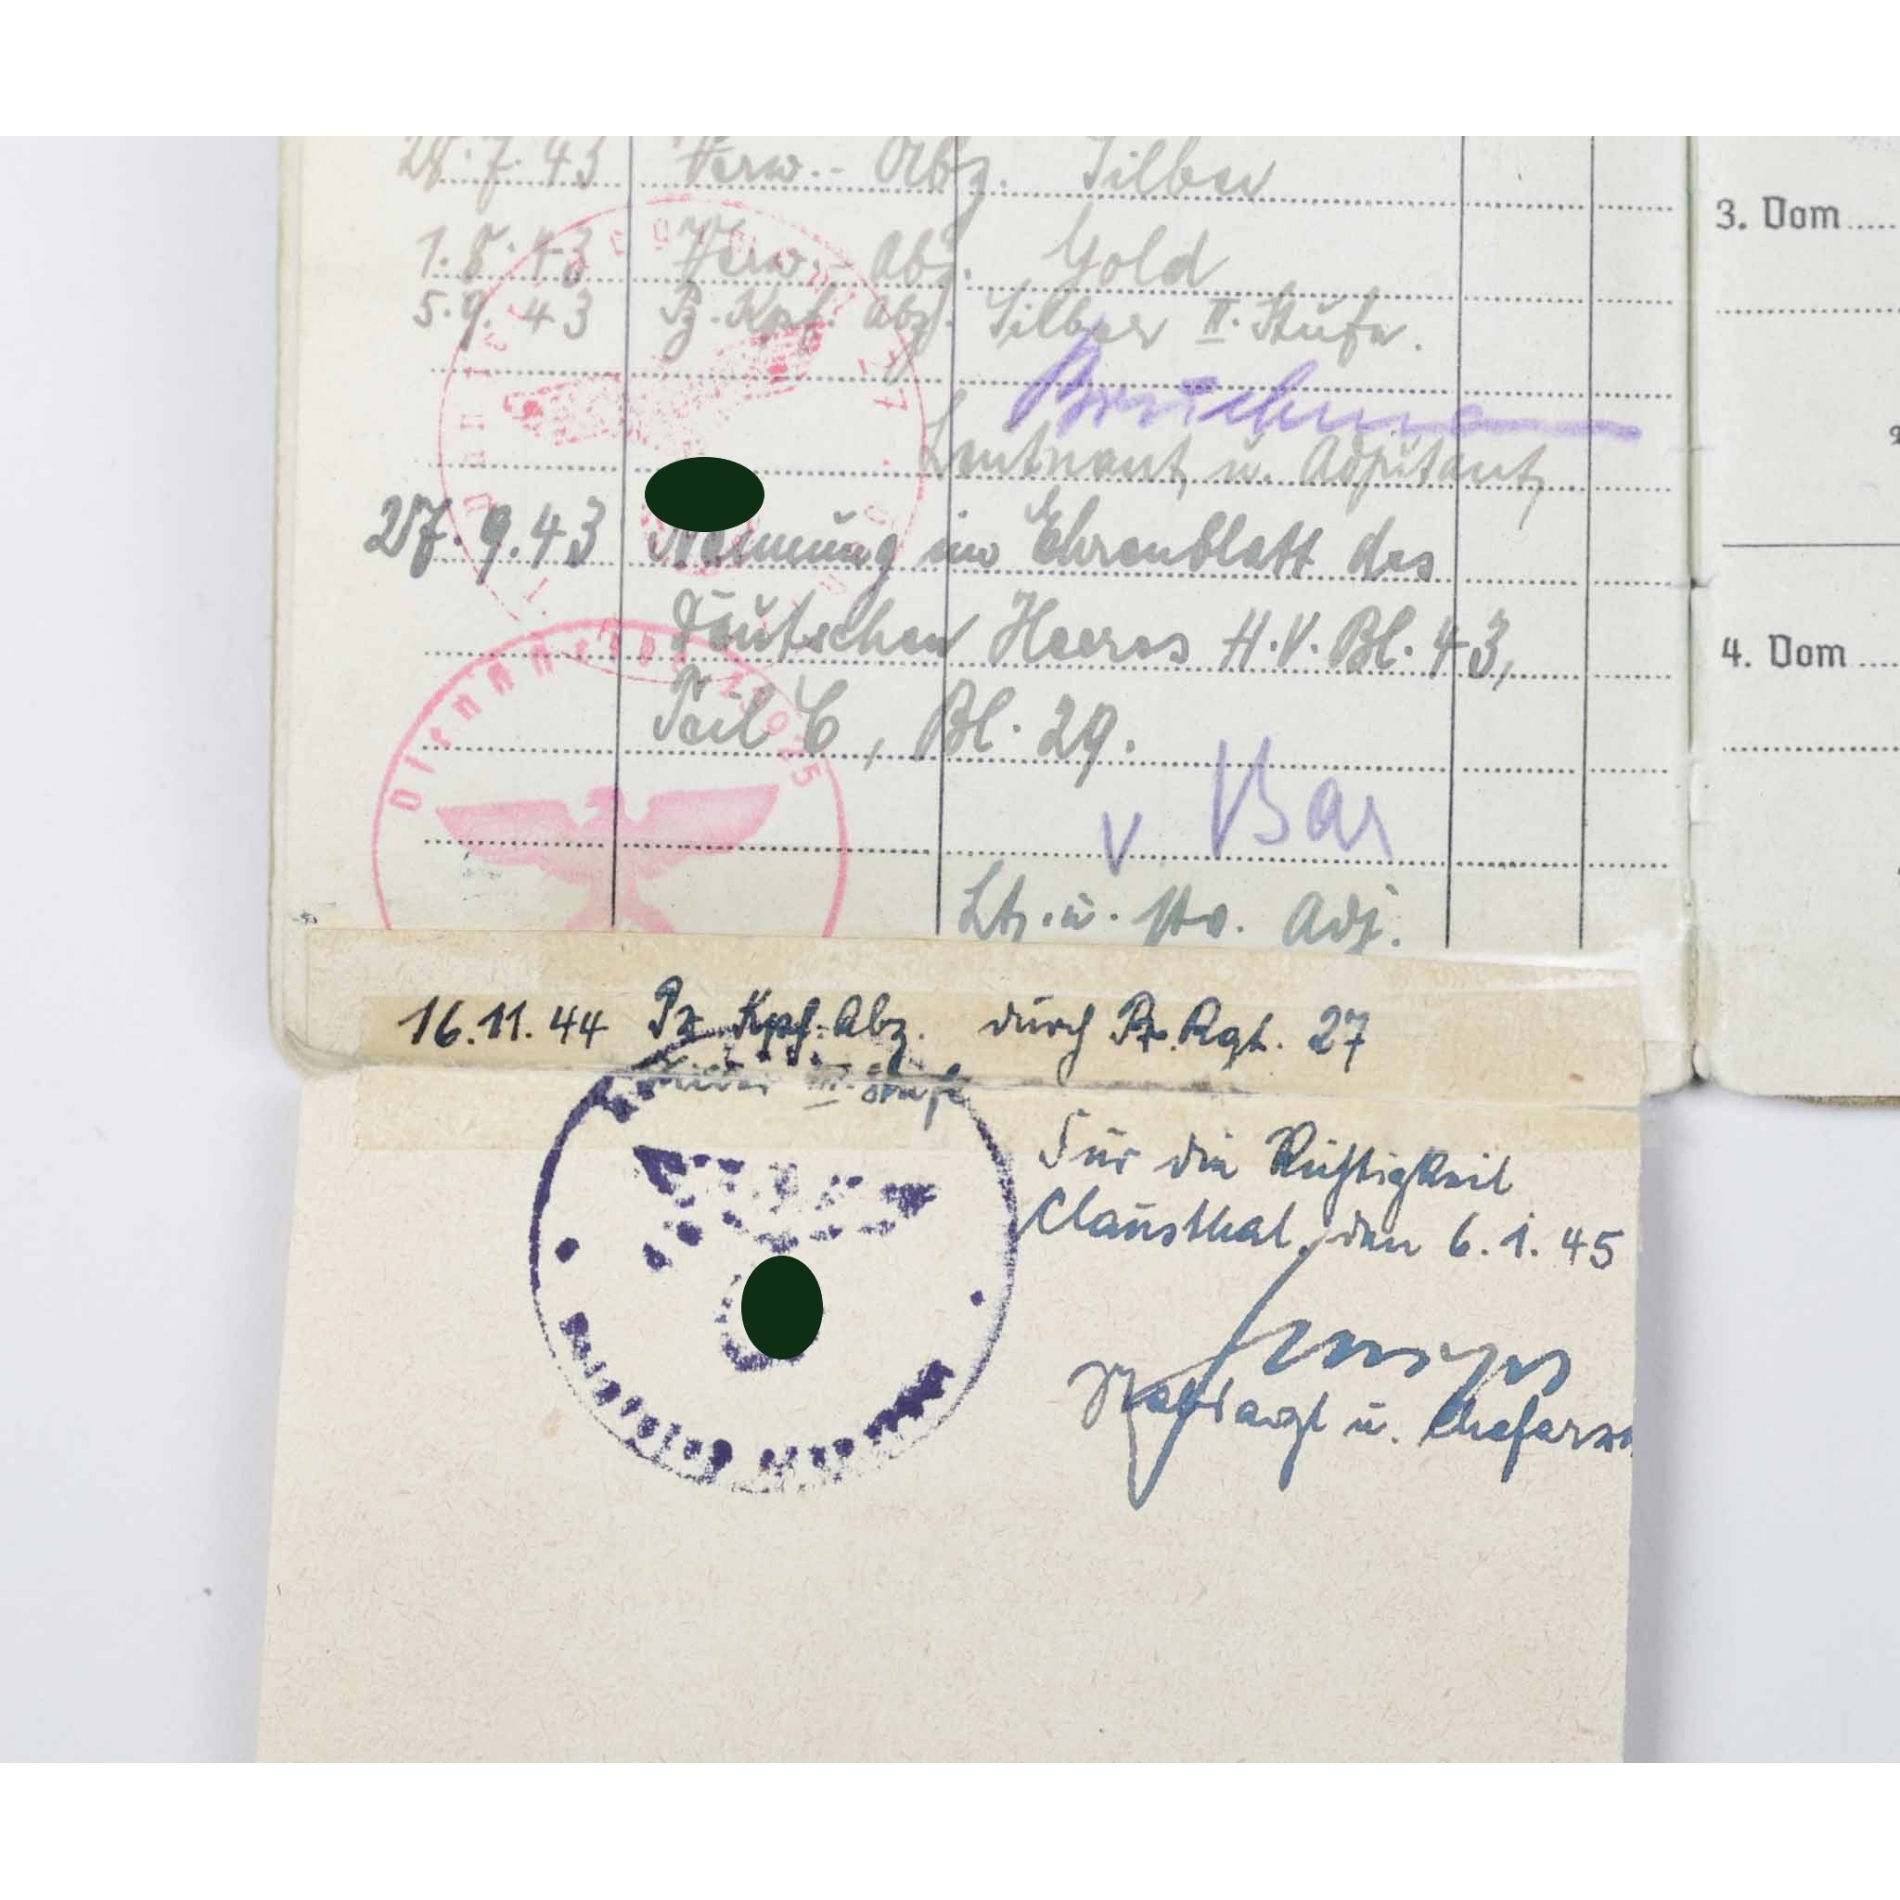 28.7.43 Verw.- Abz. Silber
1.8.43 Verw.- Abz. Gold
5.9.43 Pz.-Kpf. Abz. Silber II. Stufe.
Leutnant u. Adjutant
27.9.43 Nennung im Ehrenblatt des
Deutschen Heeres H.V.Bl. 43,
Teil C, Bl. 29.
v Bar
Lt. u. stv. Adj.
Dienststelle
16.11.44 Pz. Kpf. Abz. durch Pz. Rgt. 27
Silber III. Stufe
Für die Richtigkeit
Clausthal, den 6.1.45
Stabsarzt u. Chefarzt
3. Vom
4. Vom